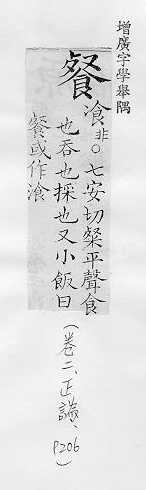 增廣字學舉隅
餐
飡非○七安切粲平聲食
也吞也採也又小飯曰
餐或作湌
(卷二、正譌、P206)